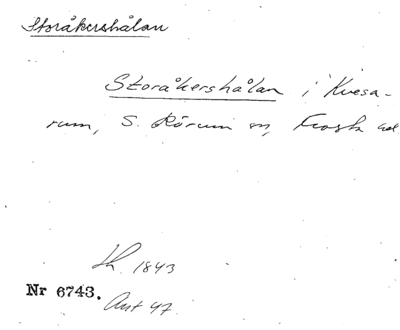 Storåkershålan
Storåkershålan i Kvesa-
rum, S. Rörum sn, Frosta hd.
Lk. 1843
Nr 6743.
Avt 47.